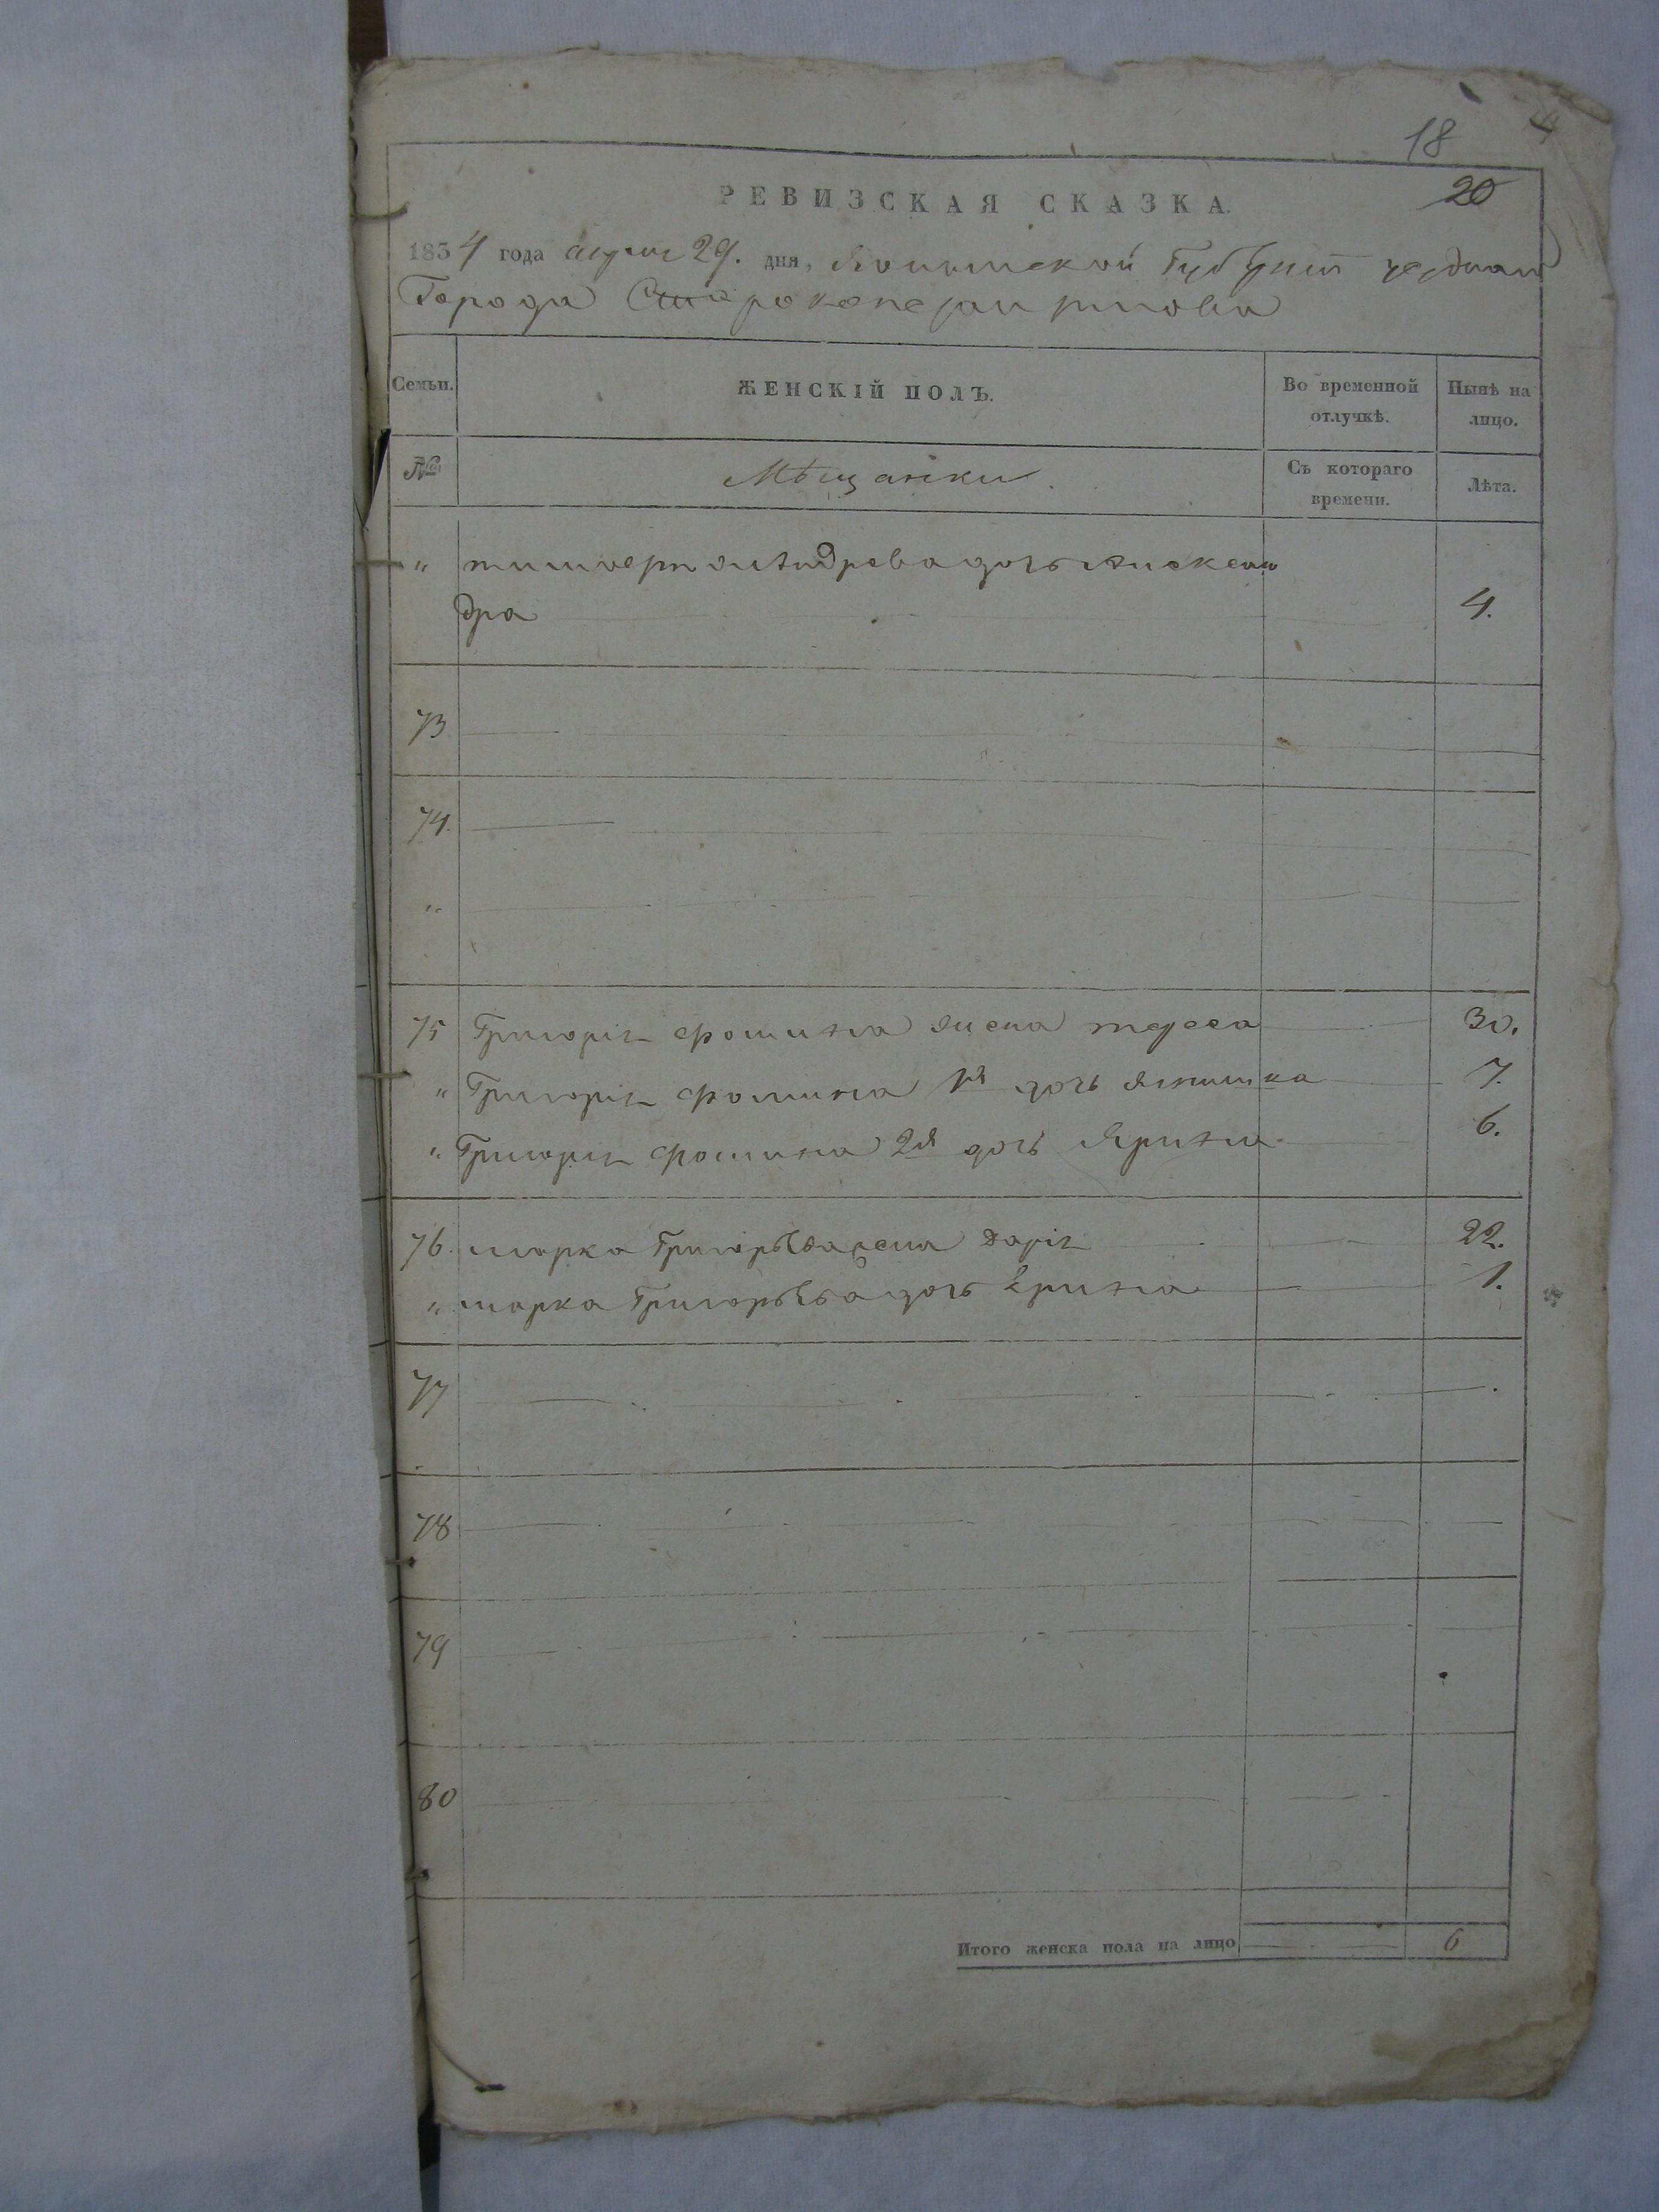 18
20
РЕВИЗСКАЯ СКАЗКА.
1834 года апреля 29. дня, Волынской Губернии уезднаго
Города Староконстантинова
Семьи. ЖЕНСКІЙ ПОЛЪ. Во временной отлучкѣ. Нынѣ на лицо.
№ Мѣщанки. Съ котораго времени. Лѣта.
" дочь Александра 4.
73
74.
"
75 Григорія Фомина жена тереса 30.
" Григорія Фомина 1я дочь 7.
" Григорія Фомина 2я дочь Ярина 6.
76. марка Григорьева жена Дарія 22.
" марка Григорьева дочь Ірина 1.
77
78
79
80
Итого женска пола на лицо 6